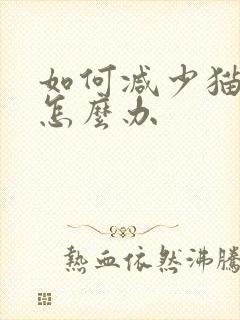 如何减少猫
怎麼办
熱血依然沸騰